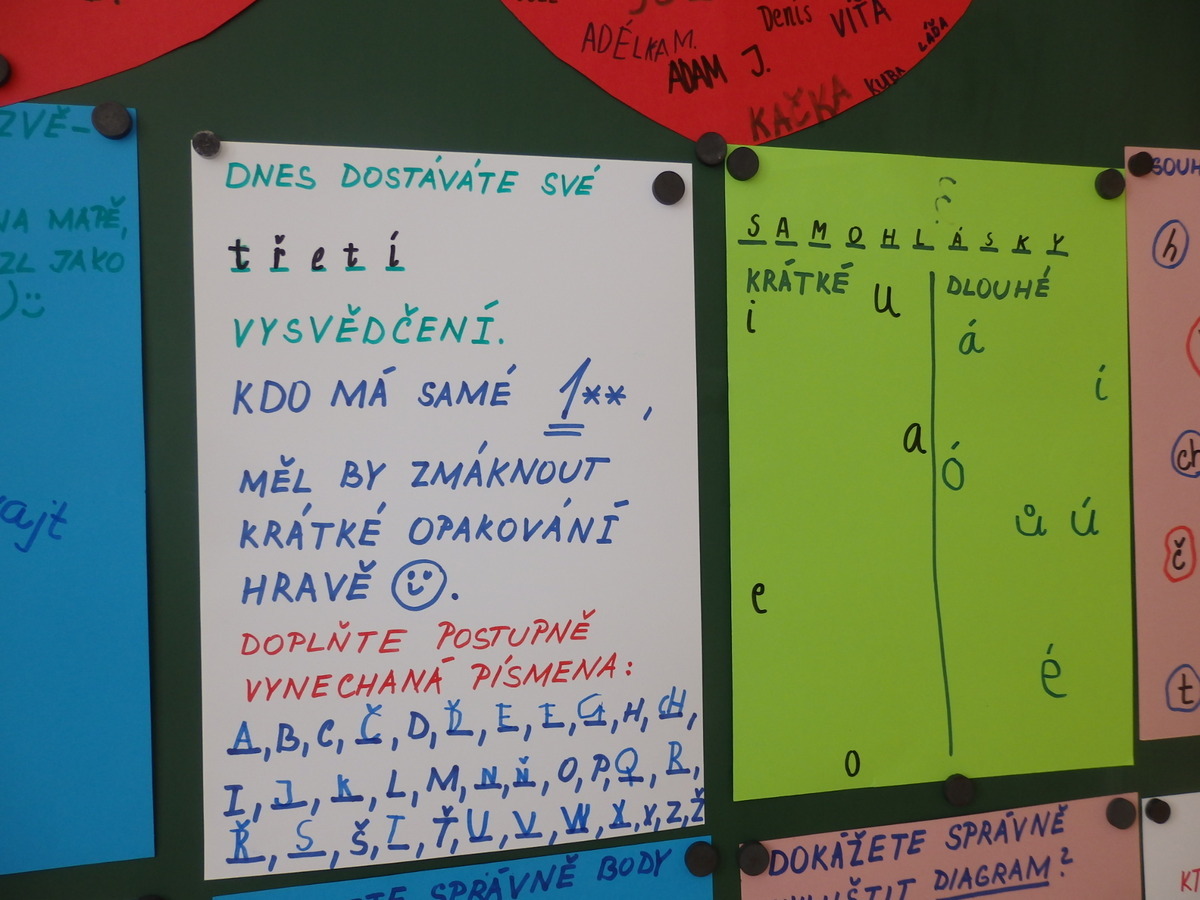 ADÉLKA M.
DENIS
VÍŤA
LÁĎA
ADAM J.
KUBA
KAČKA
ZVĚ-
NA MAPĚ,
ZL JAKO
DNES DOSTÁVÁTE SVÉ
třetí
VYSVĚDČENÍ.
KDO MÁ SAMÉ 1**,
MĚL BY ZMÁKNOUT
KRÁTKÉ OPAKOVÁNÍ
HRAVĚ ☺.
DOPLŇTE POSTUPNĚ
VYNECHANÁ PÍSMENA:
A, B, C, Č, D, Ď, E, F, G, H, CH,
I, J, K, L, M, N, Ň, O, P, Q, R,
Ř, S, Š, T, Ť, U, V, W, X, Y, Z, Ž
SAMOHLÁSKY
KRÁTKÉ DLOUHÉ
i u á
í
a ó
ů ú
e
é
o
SOUH
h
ch
č
t
SPRÁVNĚ BODY
DOKÁŽETE SPRÁVNĚ
DIAGRAM?